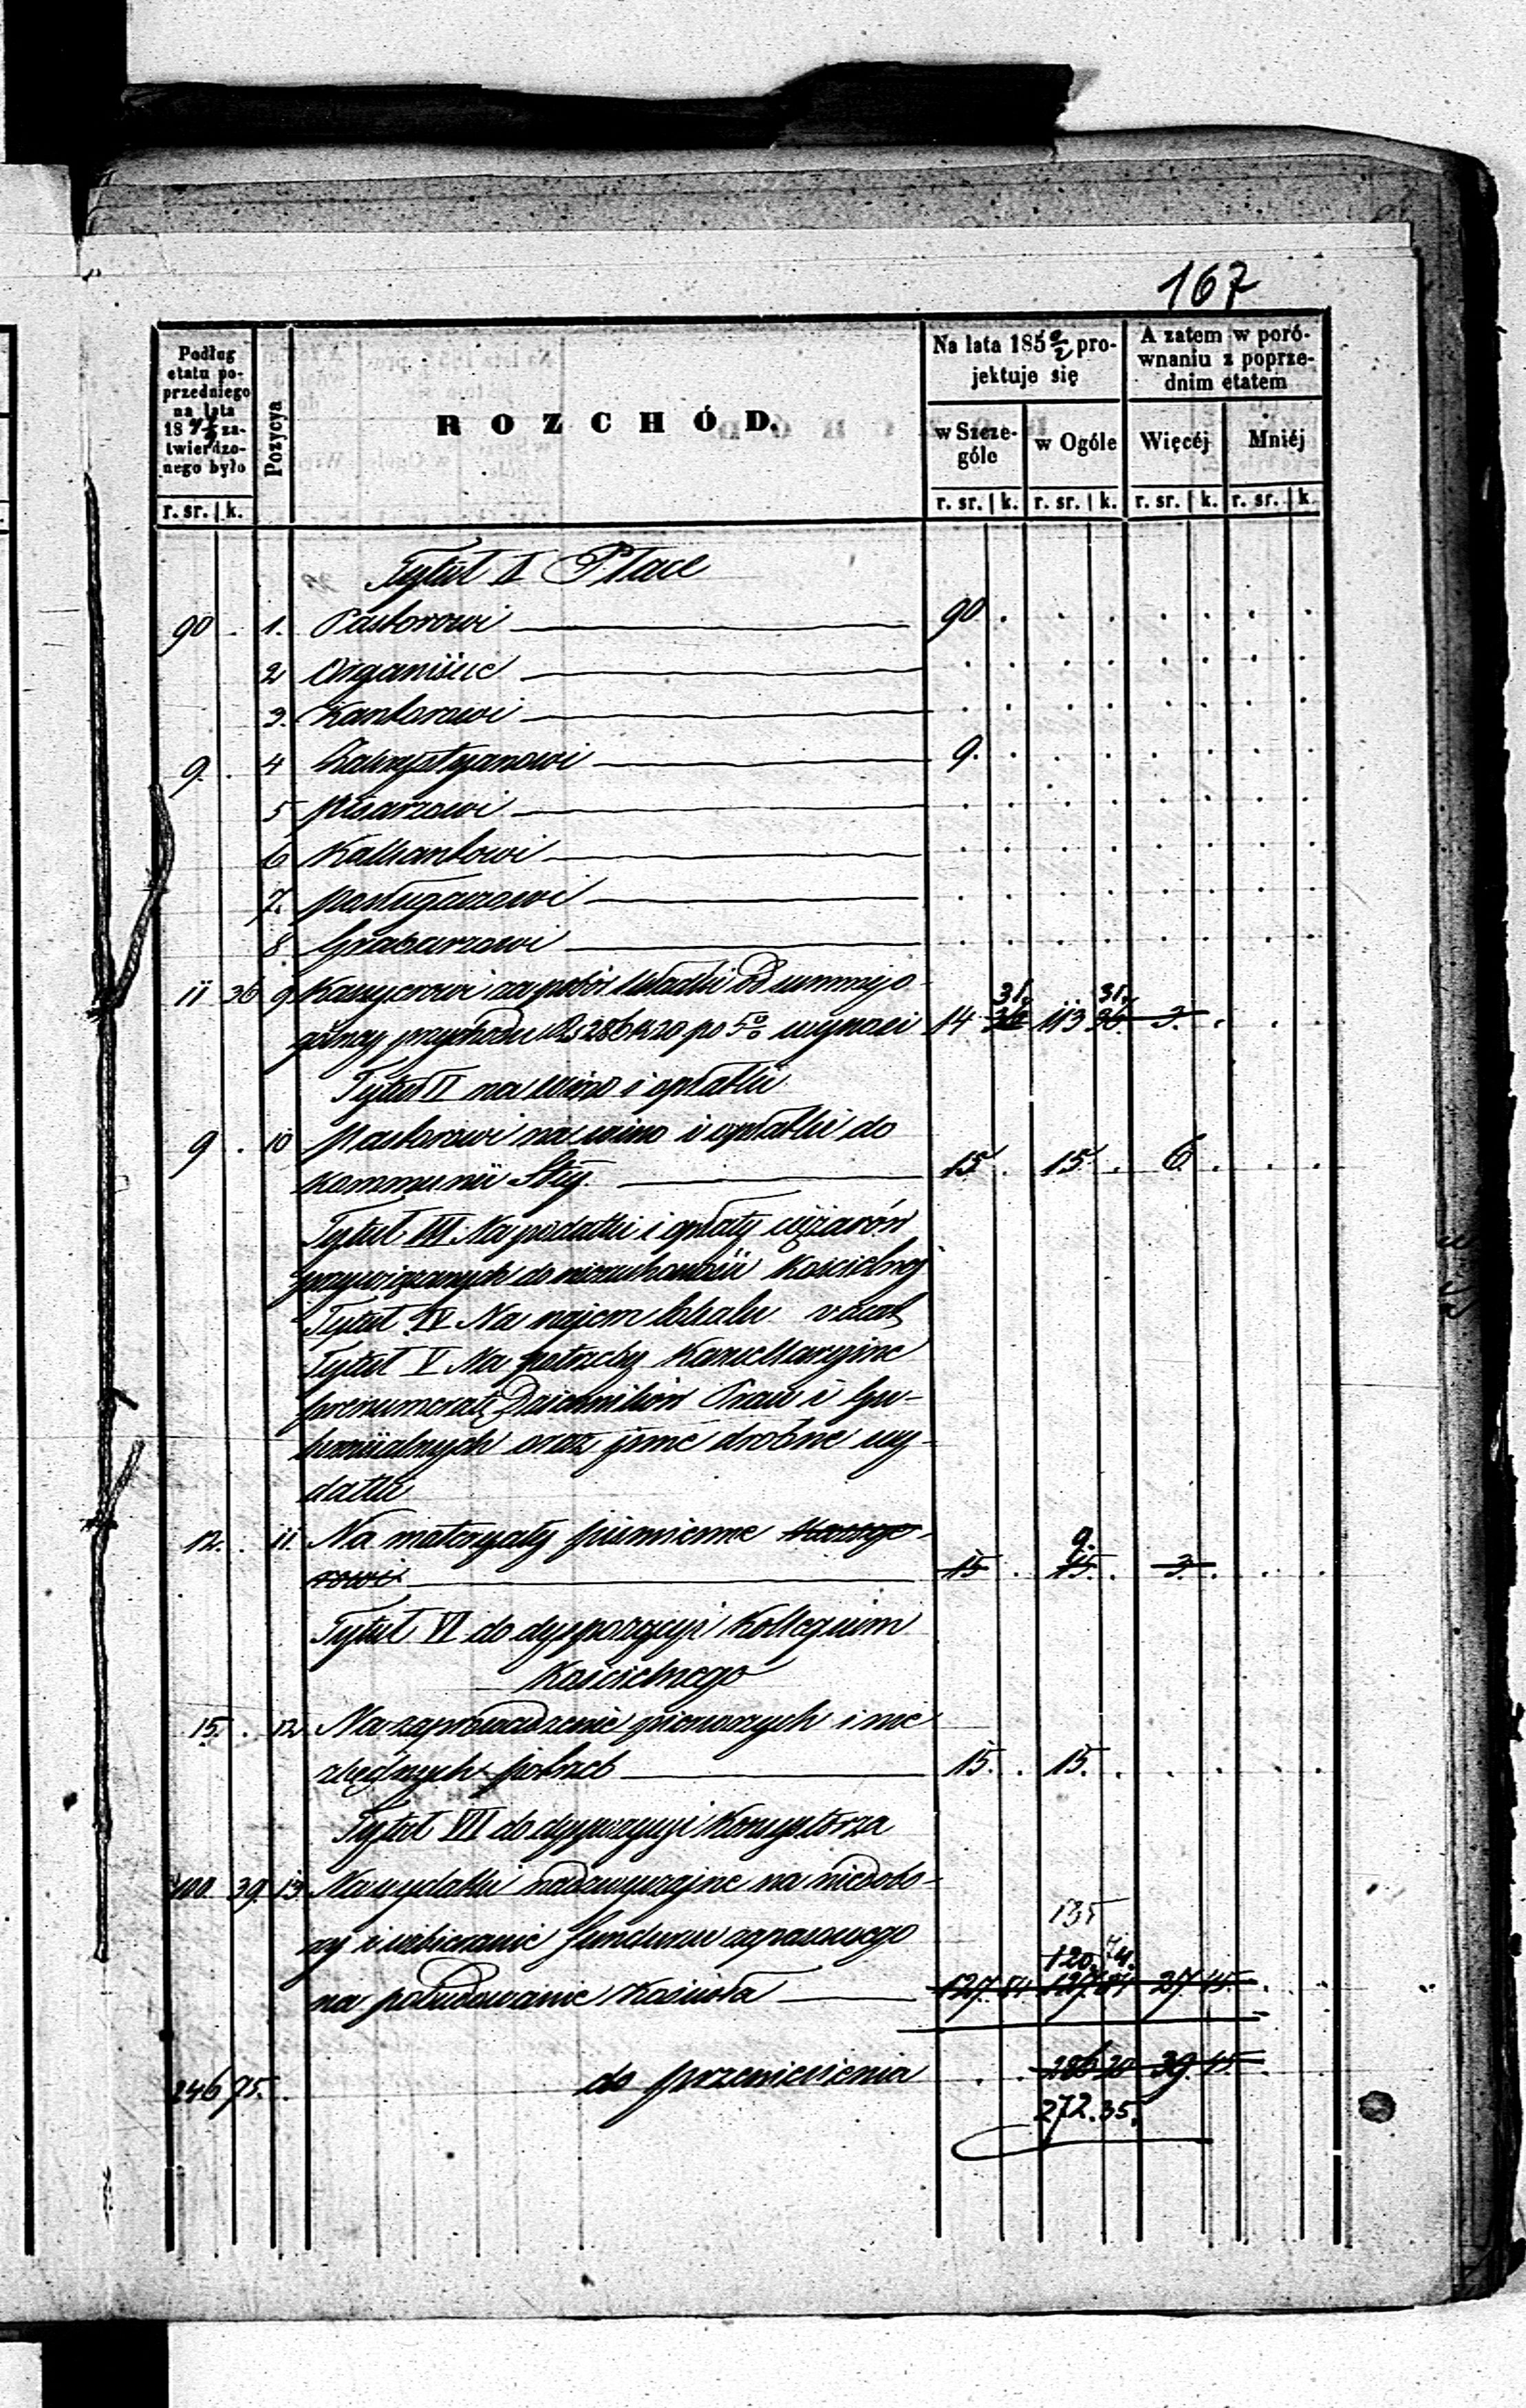 167
Podług etatu poprzedniego na lata 18 zatwierdzonego było
Pozycya
ROZCHÓD.
Na lata 185 0/2 projektuje się
A zatem w porównaniu z poprzednim etatem
w Szczególe
w Ogóle
Więcéj
Mniéj
r. sr. | k. r. sr. | k. r. sr. | k. r. sr. | k. r. sr. | k.
Tytuł I Płace
90 . 1. Pastorowi 90 .
2 Organiście
3. Kantorowi
9. . 4 Zakrystyanowi 9. .
5 Pisarzowi
6 Kalkantowi
7. Posługaczowi
8. Grabarzowi
11 36 9 Kassyerowi za pobór składki od summy o-
31. 31.
gólnej przychodu Rs 286 k 20 po 5% wynosi 14 36 113 36 3. .
Tytuł II na wino i opłatki
9 . 10 Pastorowi na wino i opłatki do
Kommunii Stej. 15 . 15 . 6 .
Tytuł III Na podatki i opłaty ciężarów
przywiązanych do nieruchomości Kościelnej
Tytuł IV Na najem lokalu vacat
Tytuł V Na potrzeby Kancellaryjne
prenumeratę Dzienników Praw i Gu-
bernialnych oraz inne drobne wy-
datki
12. . 11. Na materyały piśmienne Kassye-
9.
rowi 15 . 15 . 3. .
Tytuł VI do dyspozycyi Kollegium
Kościelnego
15. . 12 Na zaprowadzenie pierwszych i nie
zbędnych potrzeb 15. . 15. .
Tytuł VII do dyspozycyi Konsystorza
100. 39. 13 Na wydatki nadzwyczajne na niedobo-
135
ry i uzbieranie funduszu zapasowego
120. 74.
na pobudowanie Kościoła 127. 84 127 84 27 45.
246 75. do przeniesienia 286 20 39. 45
272. 35.